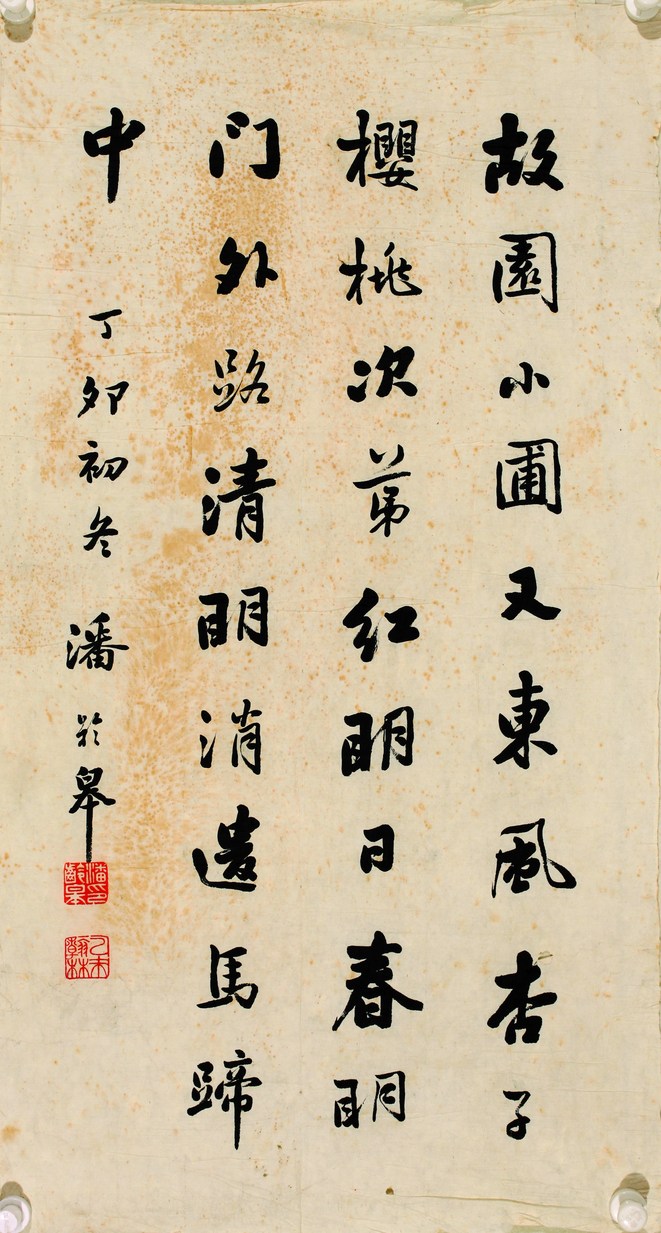 故園小圃又東風杏子
櫻桃次苐紅明日春明
门外路清明消遣馬蹄
中
丁夘初冬 潘龄皋
潘齡皋印
乙未翰林